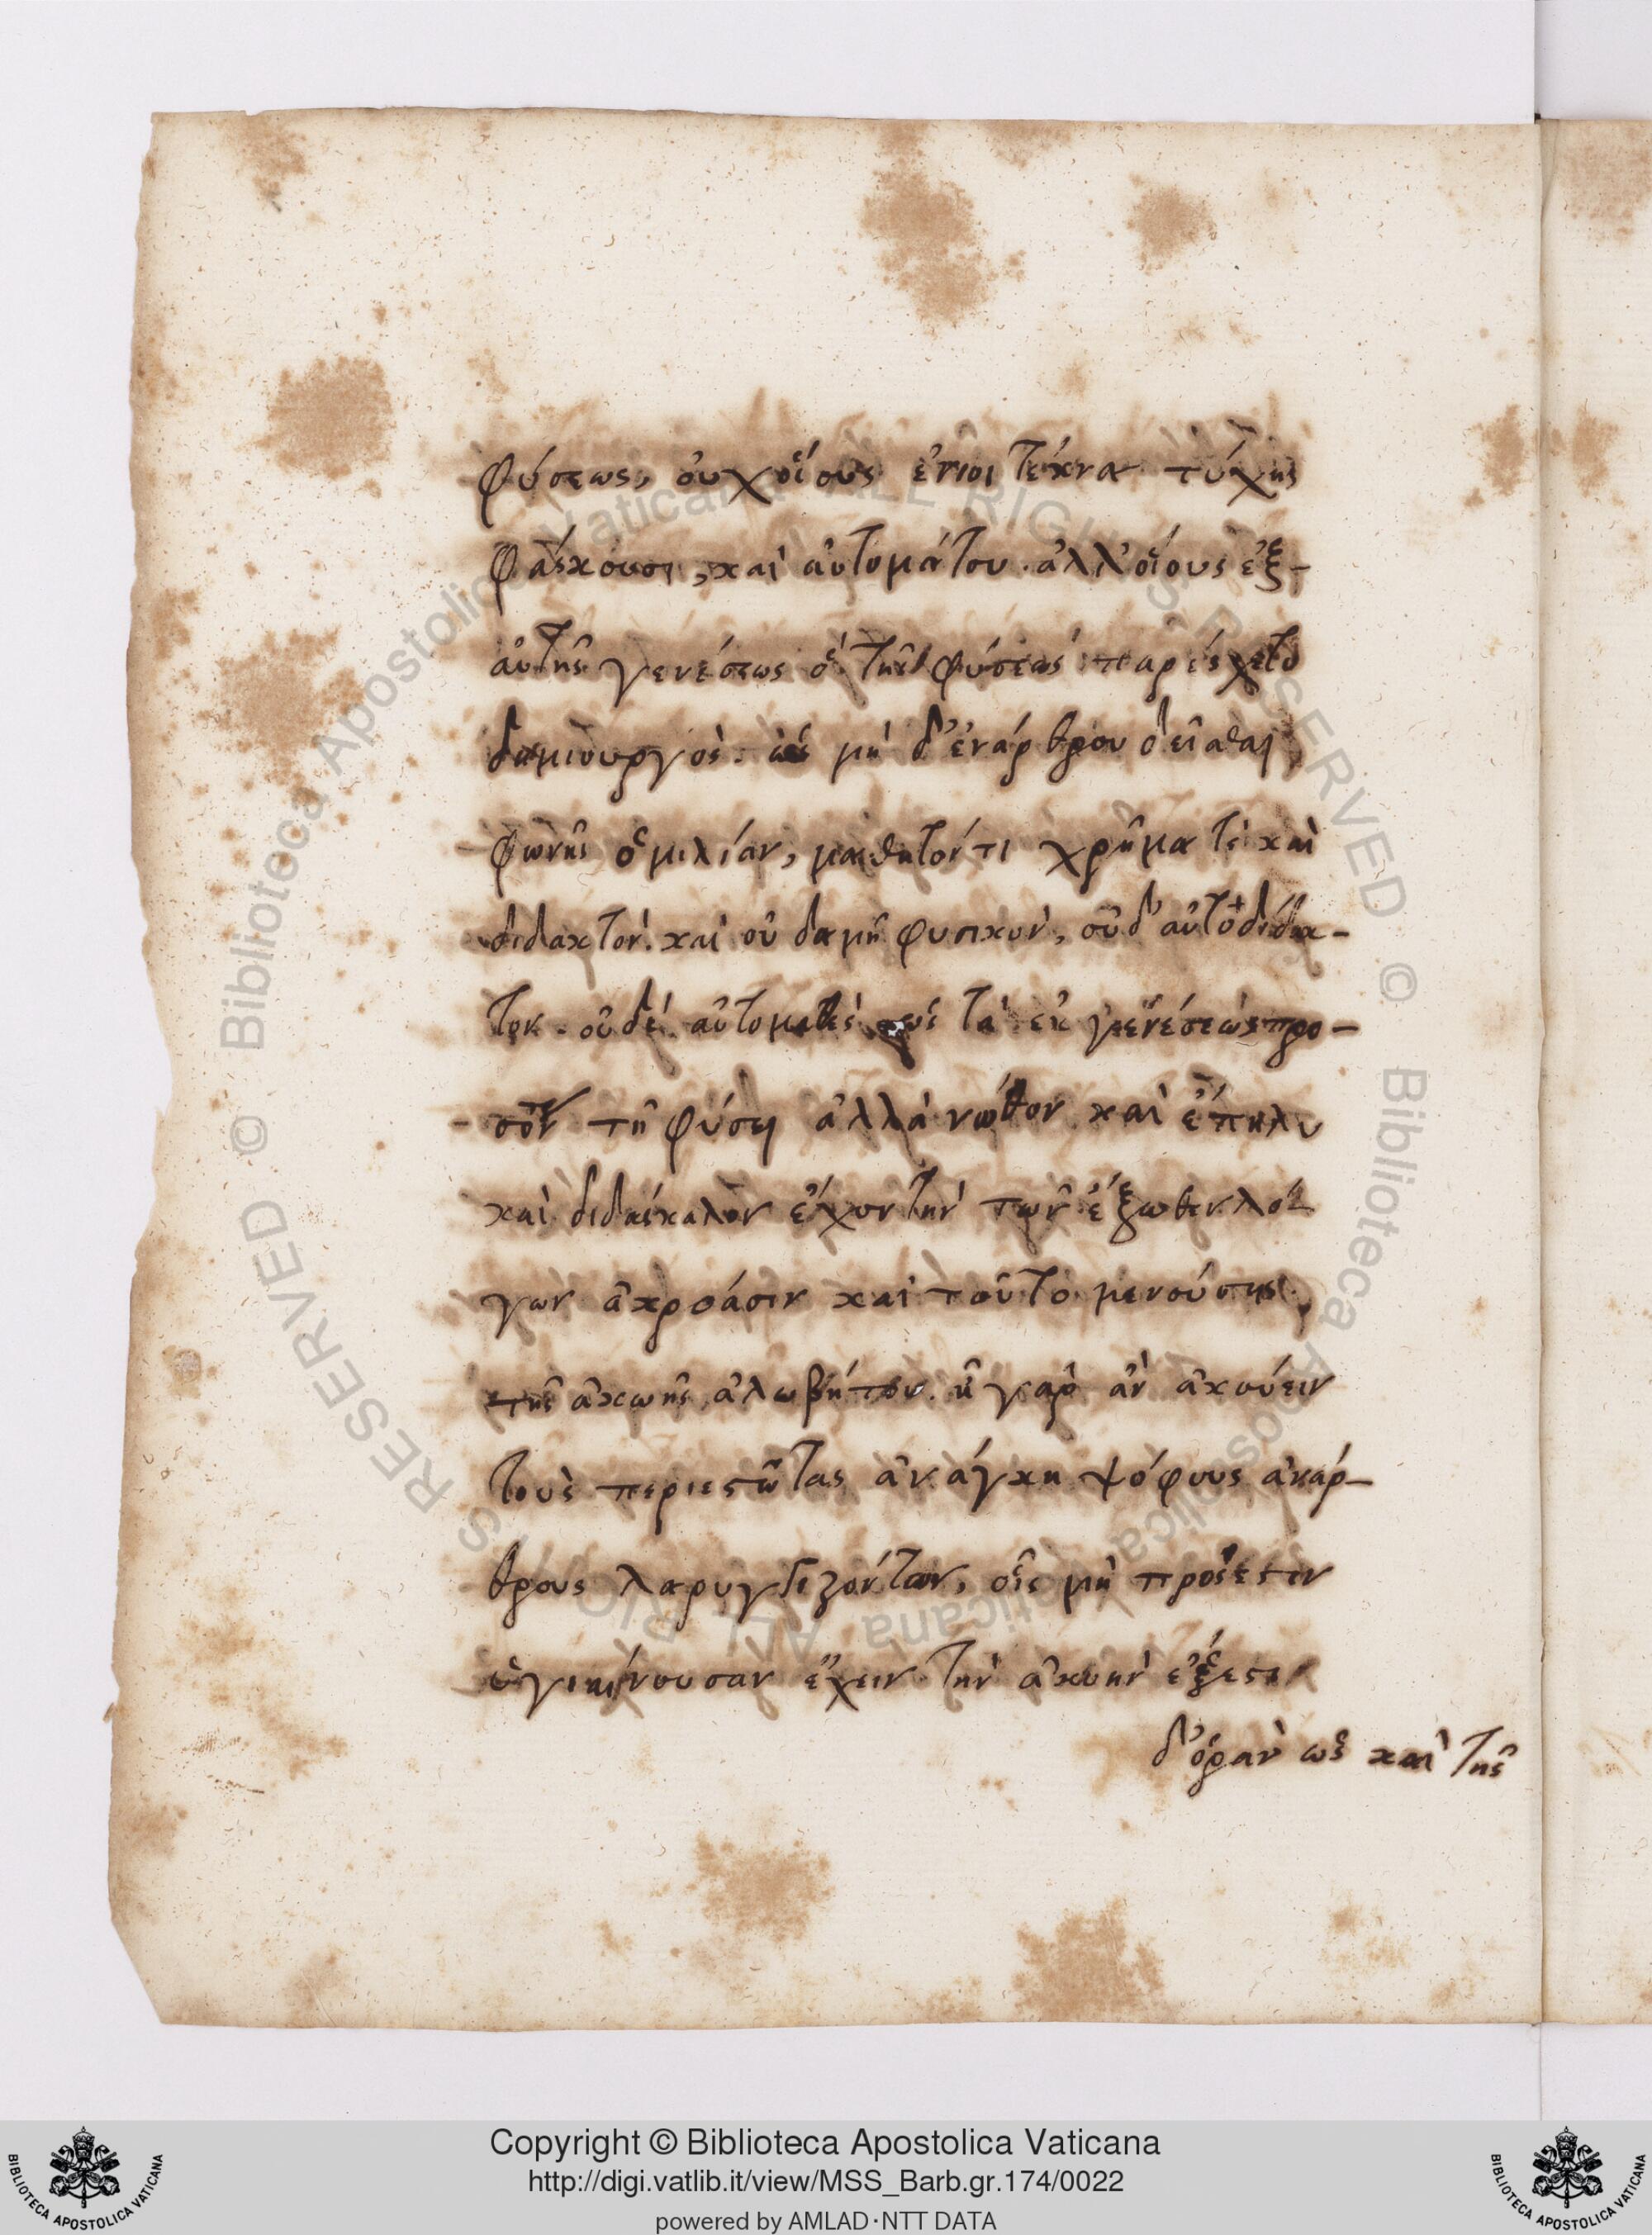 φύσεως, οὐχ οἵους ἔνιοι τέκνα τύχης
φάσκουσι, καὶ αὐτομάτου. ἀλλ' οἵους ἐξ-
αὐτῆς γενέσεως ὁ τῆς φύσεως παρέσχετο
δημιουργὸς. ὡς μὴ δ' ἐνάρθρου οἴεσθαι
φωνῆς ὁμιλίαν, μαθητόν τι χρῆμα τὲ καὶ
διδακτὸν. καὶ οὐδαμῆ φυσικὸν, οὐδ' αὐτοδίδα-
κτον. οὐδὲ αὐτομαθὲς τὰ ἐκ γενέσεως προ-
σὸν τῆ φύσει ἀλλὰ νόθον καὶ ἔπηλυ
καὶ διδάσκαλον ἔχον τὴν τῶν ἔξωθεν λό-
γων ἀκρόασιν καὶ τοῦτο μενούσης,
τῆς ἀκοῆς ἀλωβήτου. ἢ γαρ ἀν ἀκούειν
τοὺς περιεστῶτας ἀνάγκη ψόφους ἀνάρ-
θρους λαρυγγιζόντων, οἷς μὴ πρόσεστιν
ὑγιαίνουσαν ἔχειν τὴν ἀκοὴν ἔξεστι
δ' ὁρᾶν ὡς καὶ τῆς
Copyright © Biblioteca Apostolica Vaticana
http://digi.vatlib.it/view/MSS_Barb.gr.174/0022
powered by AMLAD·NTT DATA